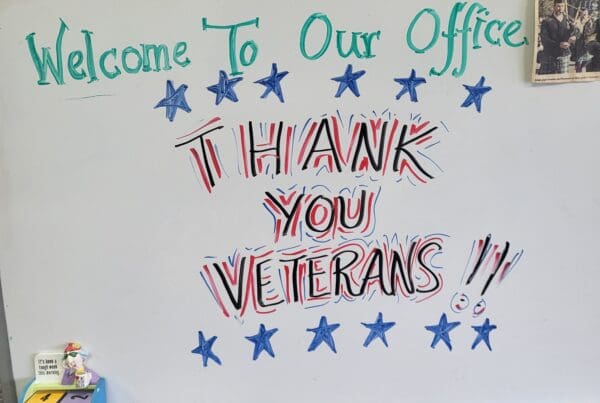 Welcome To Our Office
THANK
YOU
VETERANS!!
It's been a
tough week
this morning.
4 2